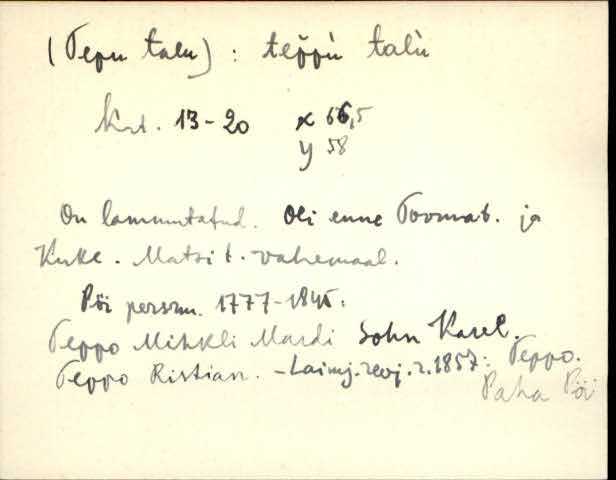 (Tepu talu) : teppù talù
Krt. 13-20 x 66,5
y 58
On lammutatud. Oli enne Tooma t. ja
Kuke-Matsi t. vahemaal.
Pöi persrm. 1777-1845:
Teppo Mihkli Mardi Sohn Karel.
Teppo Ristian. - Laimj. revj. r. 1857: Teppo.
Paha Pöi